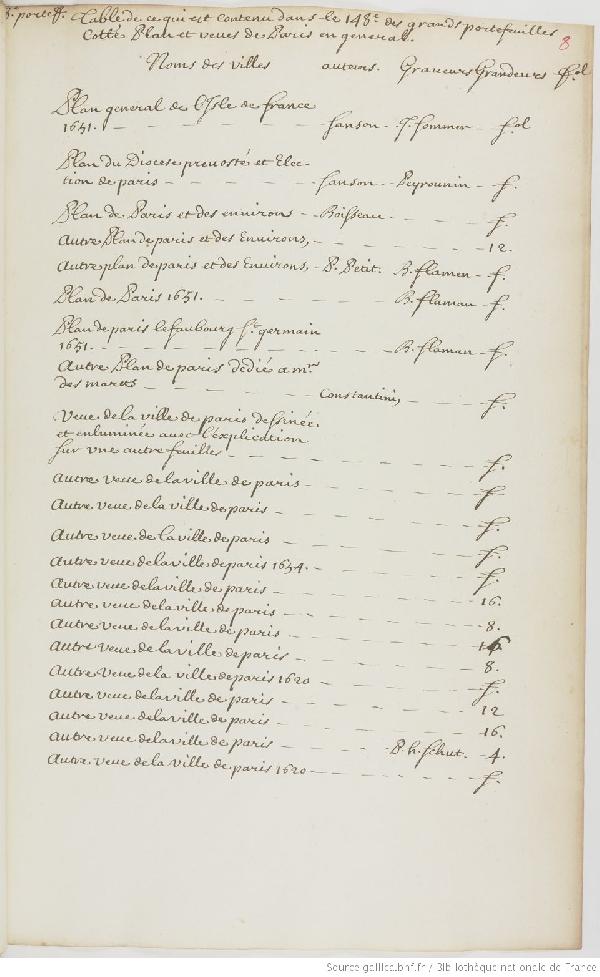 Table de ce qui est contenu dans le 148e des grands portefeuilles
Cotté Plan et veues de Paris en general.
8
Noms des villes auteurs. Graveurs Grandeurs fol
Plan general de l'Isle de france
1651. Sanson J. Sommer fol
Plan du Diocese prevosté et Elec-
tion de paris Sanson Peyrounin f.
Plan de Paris et des environs Boisseau f.
Autre Plan de paris et des Environs, 12.
Autre plan de paris et des Environs, P. Petit. B. flamen f.
Plan de Paris 1651. B. flaman f.
Plan de paris le faubourg st. germain
1651. B. flaman f.
Autre Plan de paris dedié a mr.
des marets Constantin, f.
Veue de la ville de paris dessinée
et enluminée avec l'explication
sur vne autre feuille f.
Autre veue de la ville de paris f
Autre veue de la ville de paris f.
Autre veue de la ville de paris f.
Autre veue de la ville de paris 1654. f.
Autre veue de la ville de paris 16.
Autre veue de la ville de paris 8.
Autre veue de la ville de paris 16
Autre veue de la ville de paris 8.
Autre veue de la ville de paris 1620 f.
Autre veue de la ville de paris 12
Autre veue de la ville de paris 16.
Autre veue de la ville de paris P. h. schut. 4.
Autre veue de la ville de paris 1620 f.
Source gallica.bnf.fr / Bibliothèque nationale de France